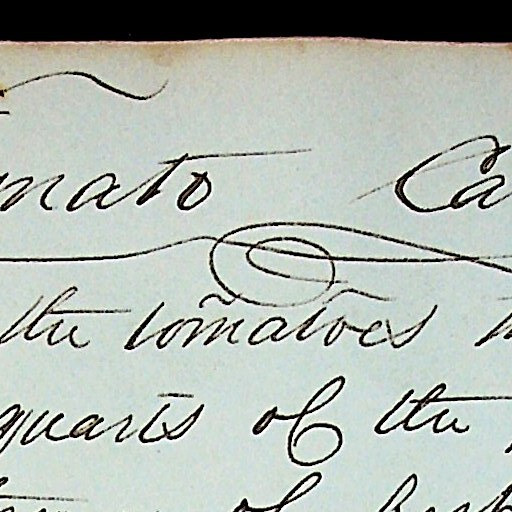 mato Ca
the tomatoes
quarts of the
of